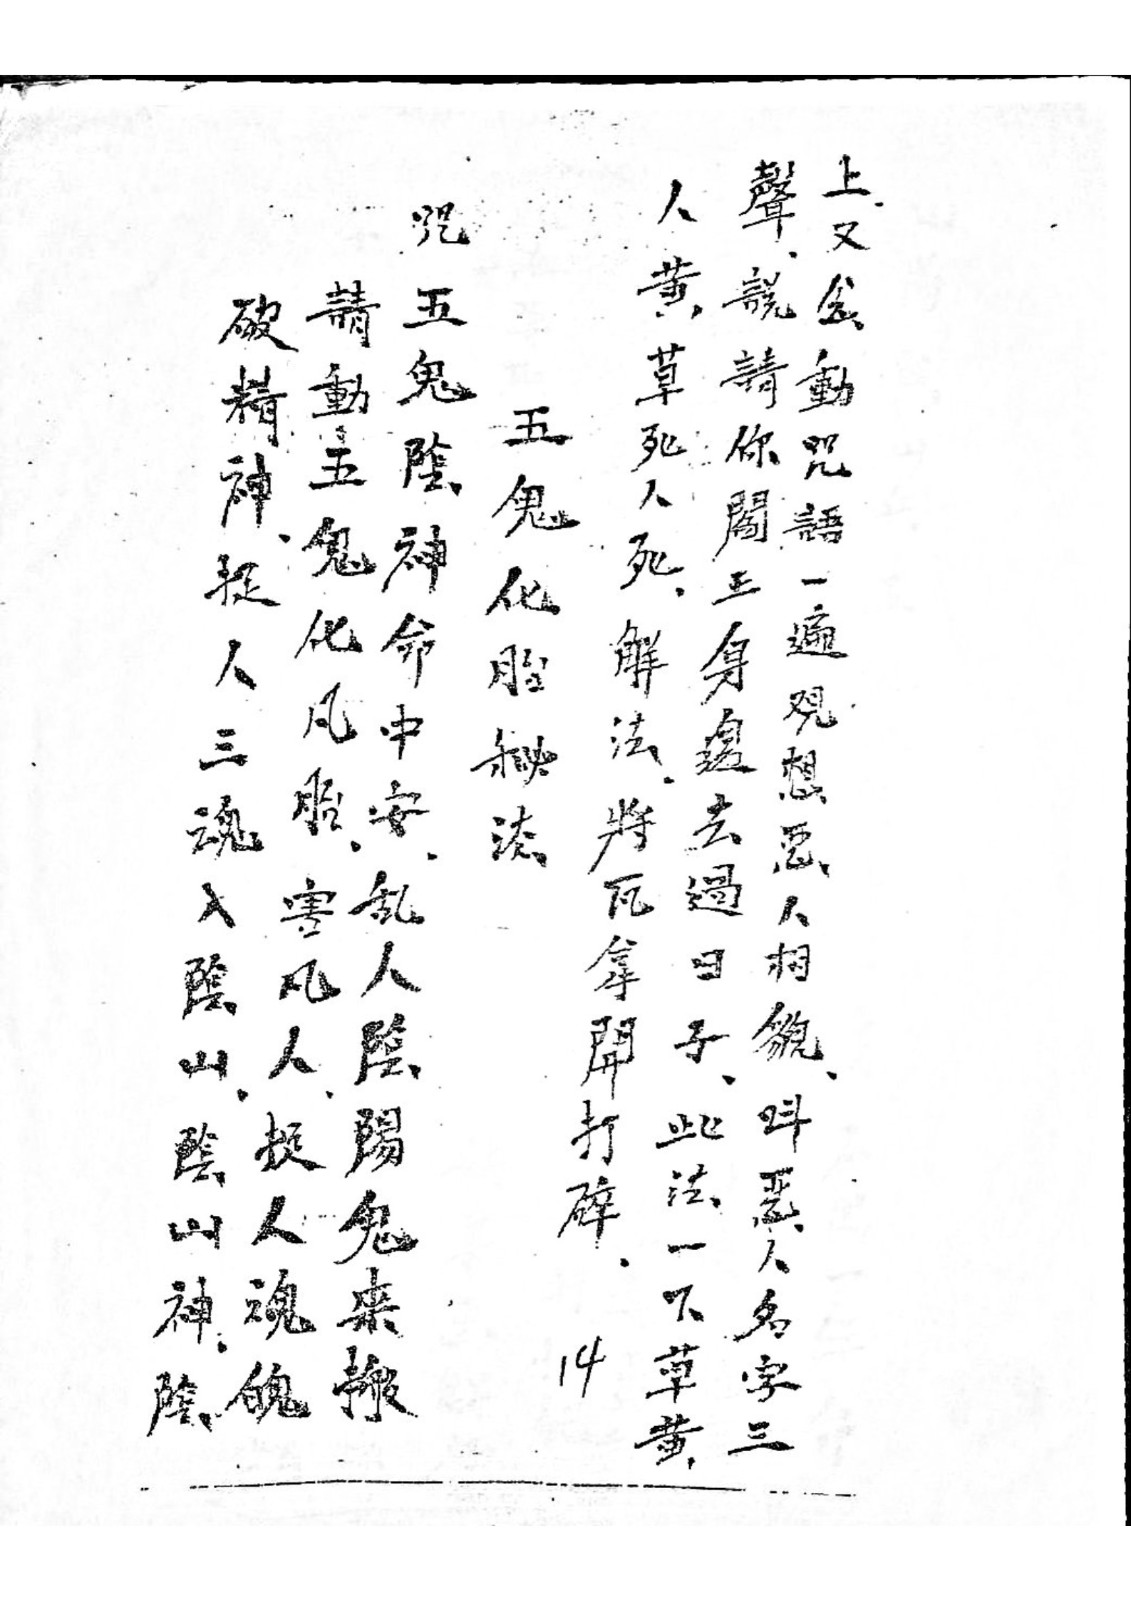 上、又念動咒語一遍观想恶人相貌、叫恶人名字三
聲、説請你閻王身邊去過日子、此法一下草黄
人黄、草死人死、解法、將瓦拿開打碎、
五鬼化胎秘法
咒五鬼陰神命中安、乱人陰陽鬼来
請動五鬼化凡胎、害凡人、捉人魂魄
破精神、捉人三魂入陰山、陰山神、陰
14